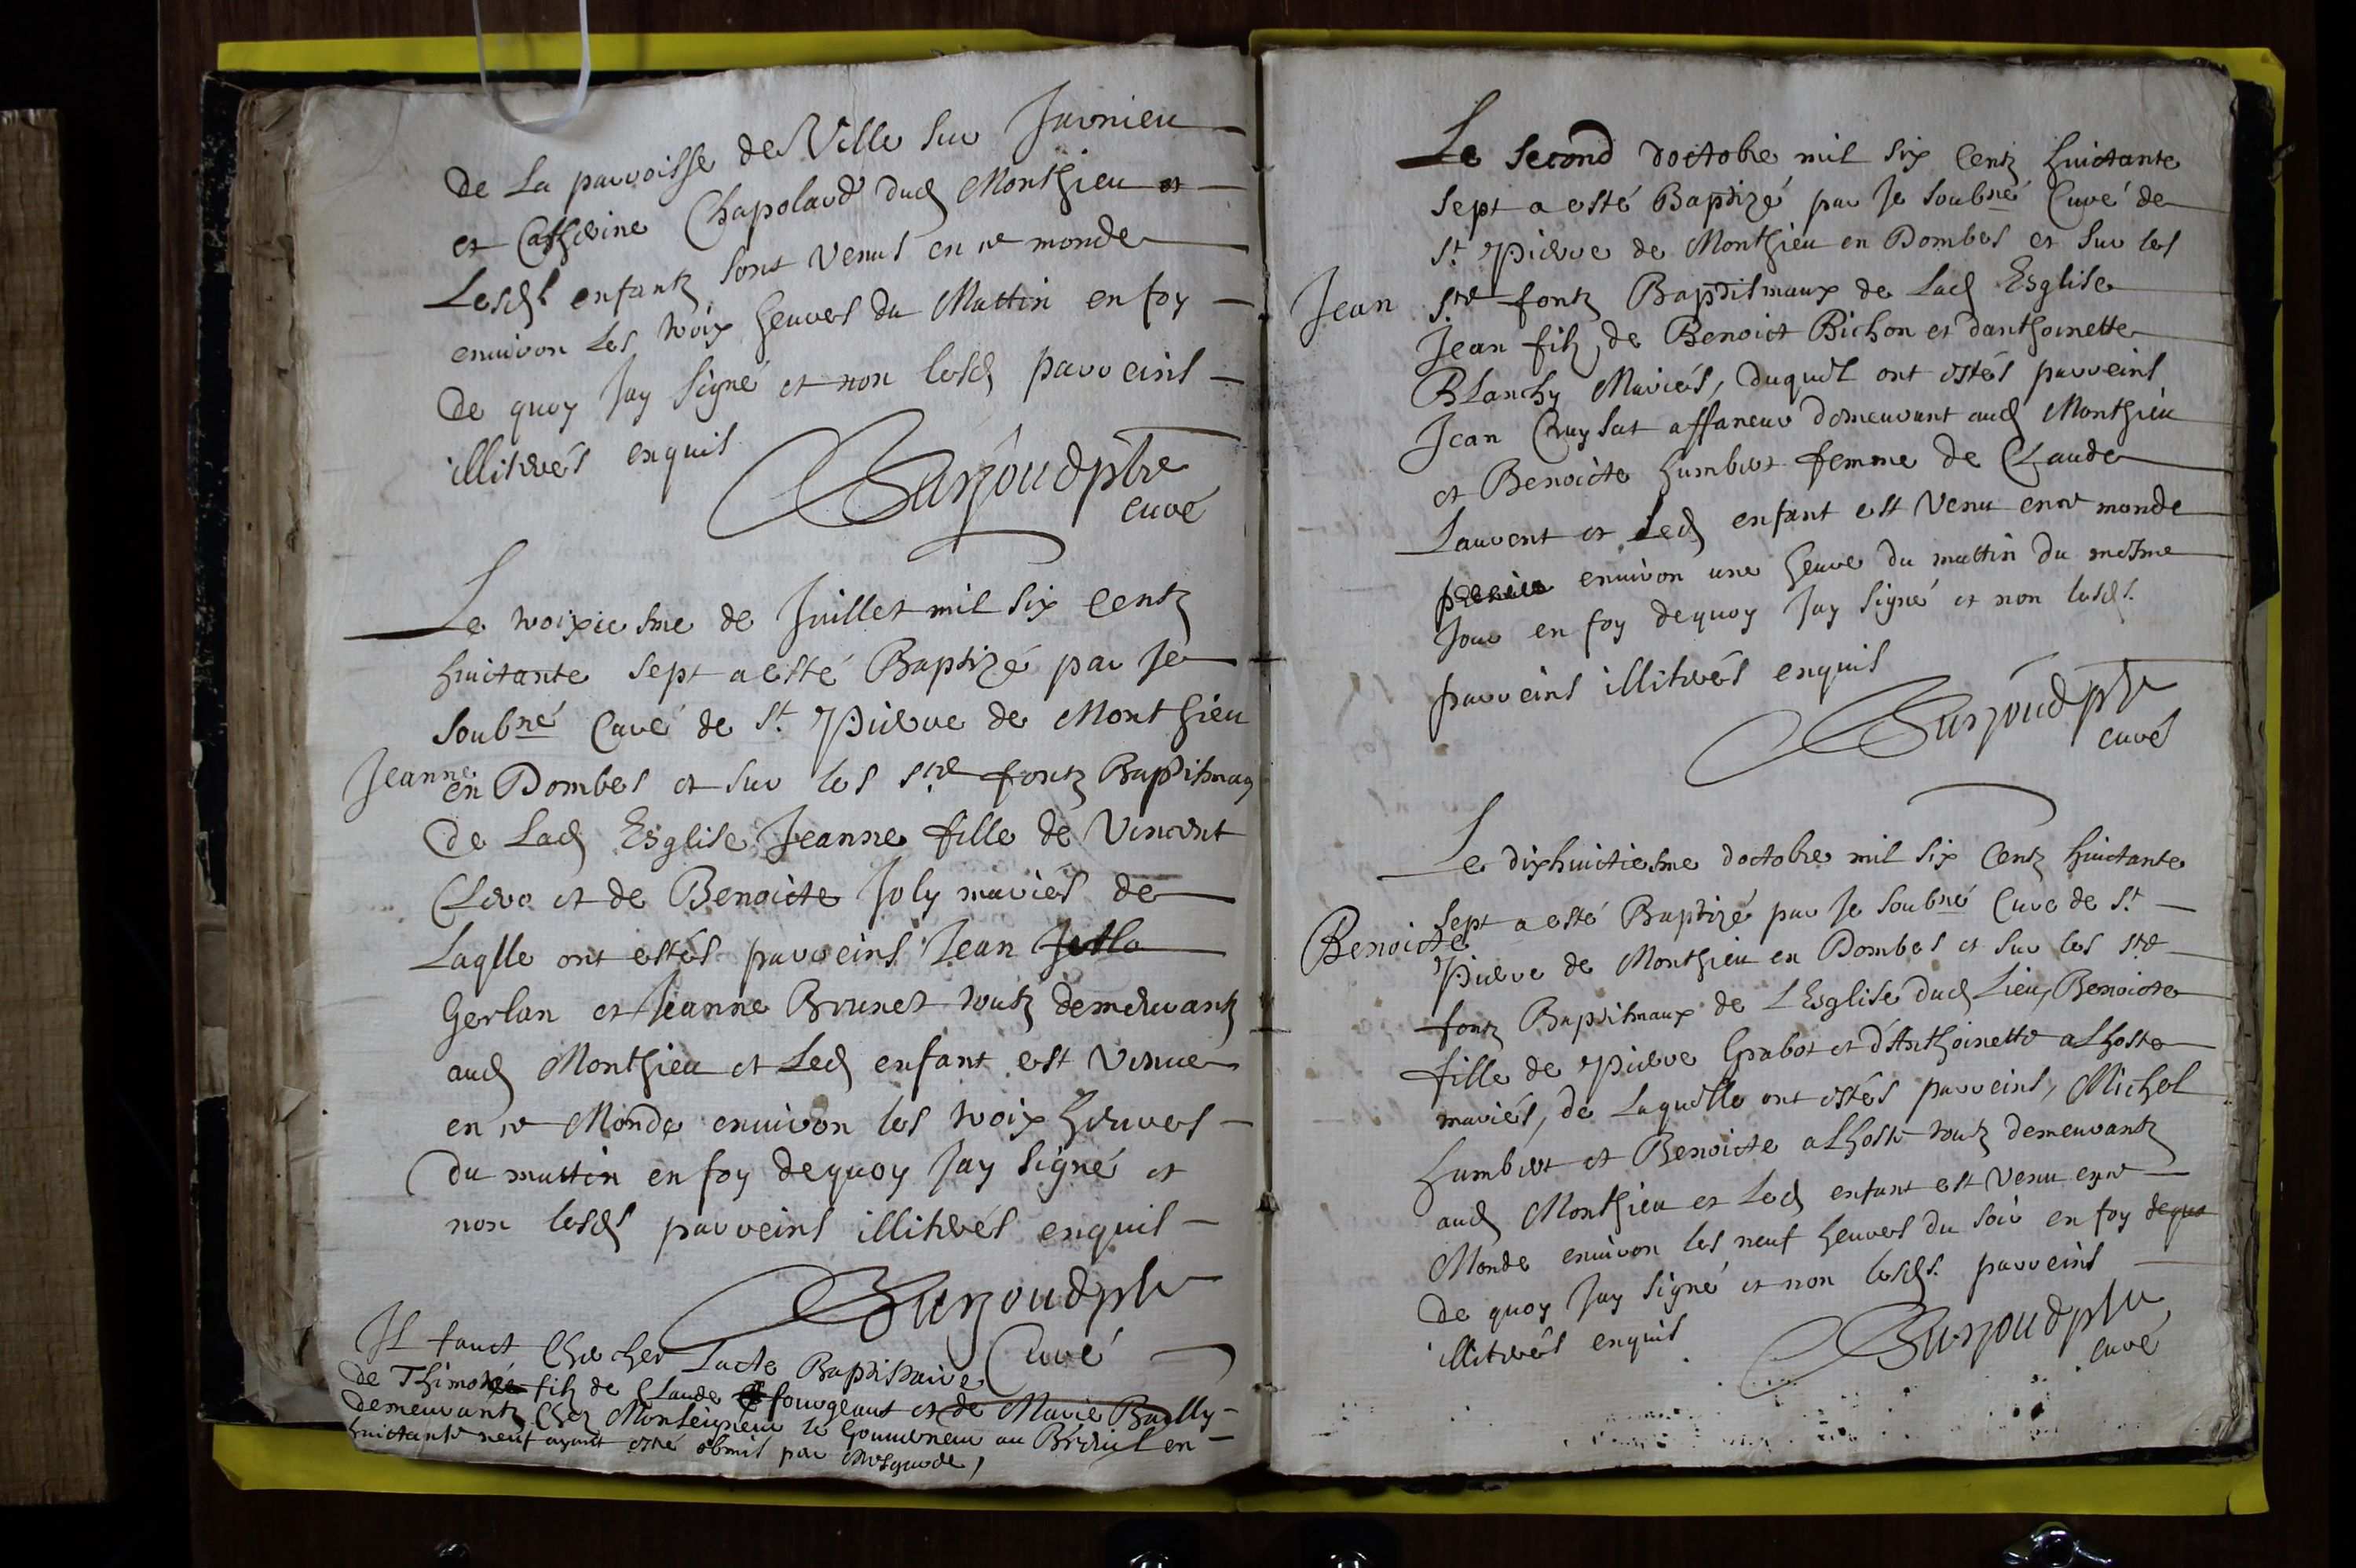 De La parroisse de Ville sur Jarnieu
et Catherine Chapolard dud Monthieu et
Lesds enfantz sont venus en ce monde
environ les troix heures du Mattin en foy
de quoy Jay signé et non lesd parreins
illiterés enquis
ptre
curé
Le troixiesme de Juillet mil six centz
huictante sept a esté Baptizé par Je
soubné Curé de St Pierre de Monthieu
Jeanne
en Dombes et sur les stes fontz Baptismaux
de Lad Esglise Jeanne fille de Vincent
Clerc et de Benoicte Joly mariés de
Laqlle ont estés parreins Jean
Gerlan et Jeanne Brunet toutz demeurantz
aud Monthieu et Led enfant est venue
en ce Monde environ les troix heures
du mattin en foy dequoy Jay signé et
non lesds parreins illiterés enquis
ptre
Curé
Il faut Chercher Lacte Baptistaire
de Thimoté filz de Claude fourgeaut et de Marie Bailly
demeurantz Chez Monseigneur le Gouverneur au Breuil en
huictante neuf ayant esté obmis par mesgarde,
Le second doctobre mil six Centz huictante
sept a esté Baptizé par Je soubné Curé de
St Pierre de Monthieu en Dombes et sur les
Jean
Ste fontz Baptismaux de Lad Esglise
Jean filz de Benoict Bichon et danthoinette
Blanchy Mariés, duquel ont estés parreins
Jean Cruysat affaneur domeurant aud Monthieu
et Benoicte humbert femme de Claude
Laurent et Led enfant est Venu en ce monde
environ une heure du mattin du mesme
Jour en foy dequoy Jay signé et non lesds.
parreins illiterés enquis
ptre
curé
Le dixhuictiesme doctobre mil six Centz huictante
sept a esté Baptizé par Je soubné Curé de St
Benoicte
Pierre de Monthieu en Dombes et sur les ste
fontz Baptismaux de LEsglise dud Lieu, Benoicte
fille de Pierre Grabot et dAnthoinette alhoste
mariés, de Laquelle ont estés parreins, Michel
humbert et Benoicte alhoste toutz demeurantz
aud Monthieu et Led enfant est venu en ce
Monde environ les neuf heures du soir en foy dequo
de quoy Jay signé et non lesds. parreins
illiterés enquis
ptre
curé